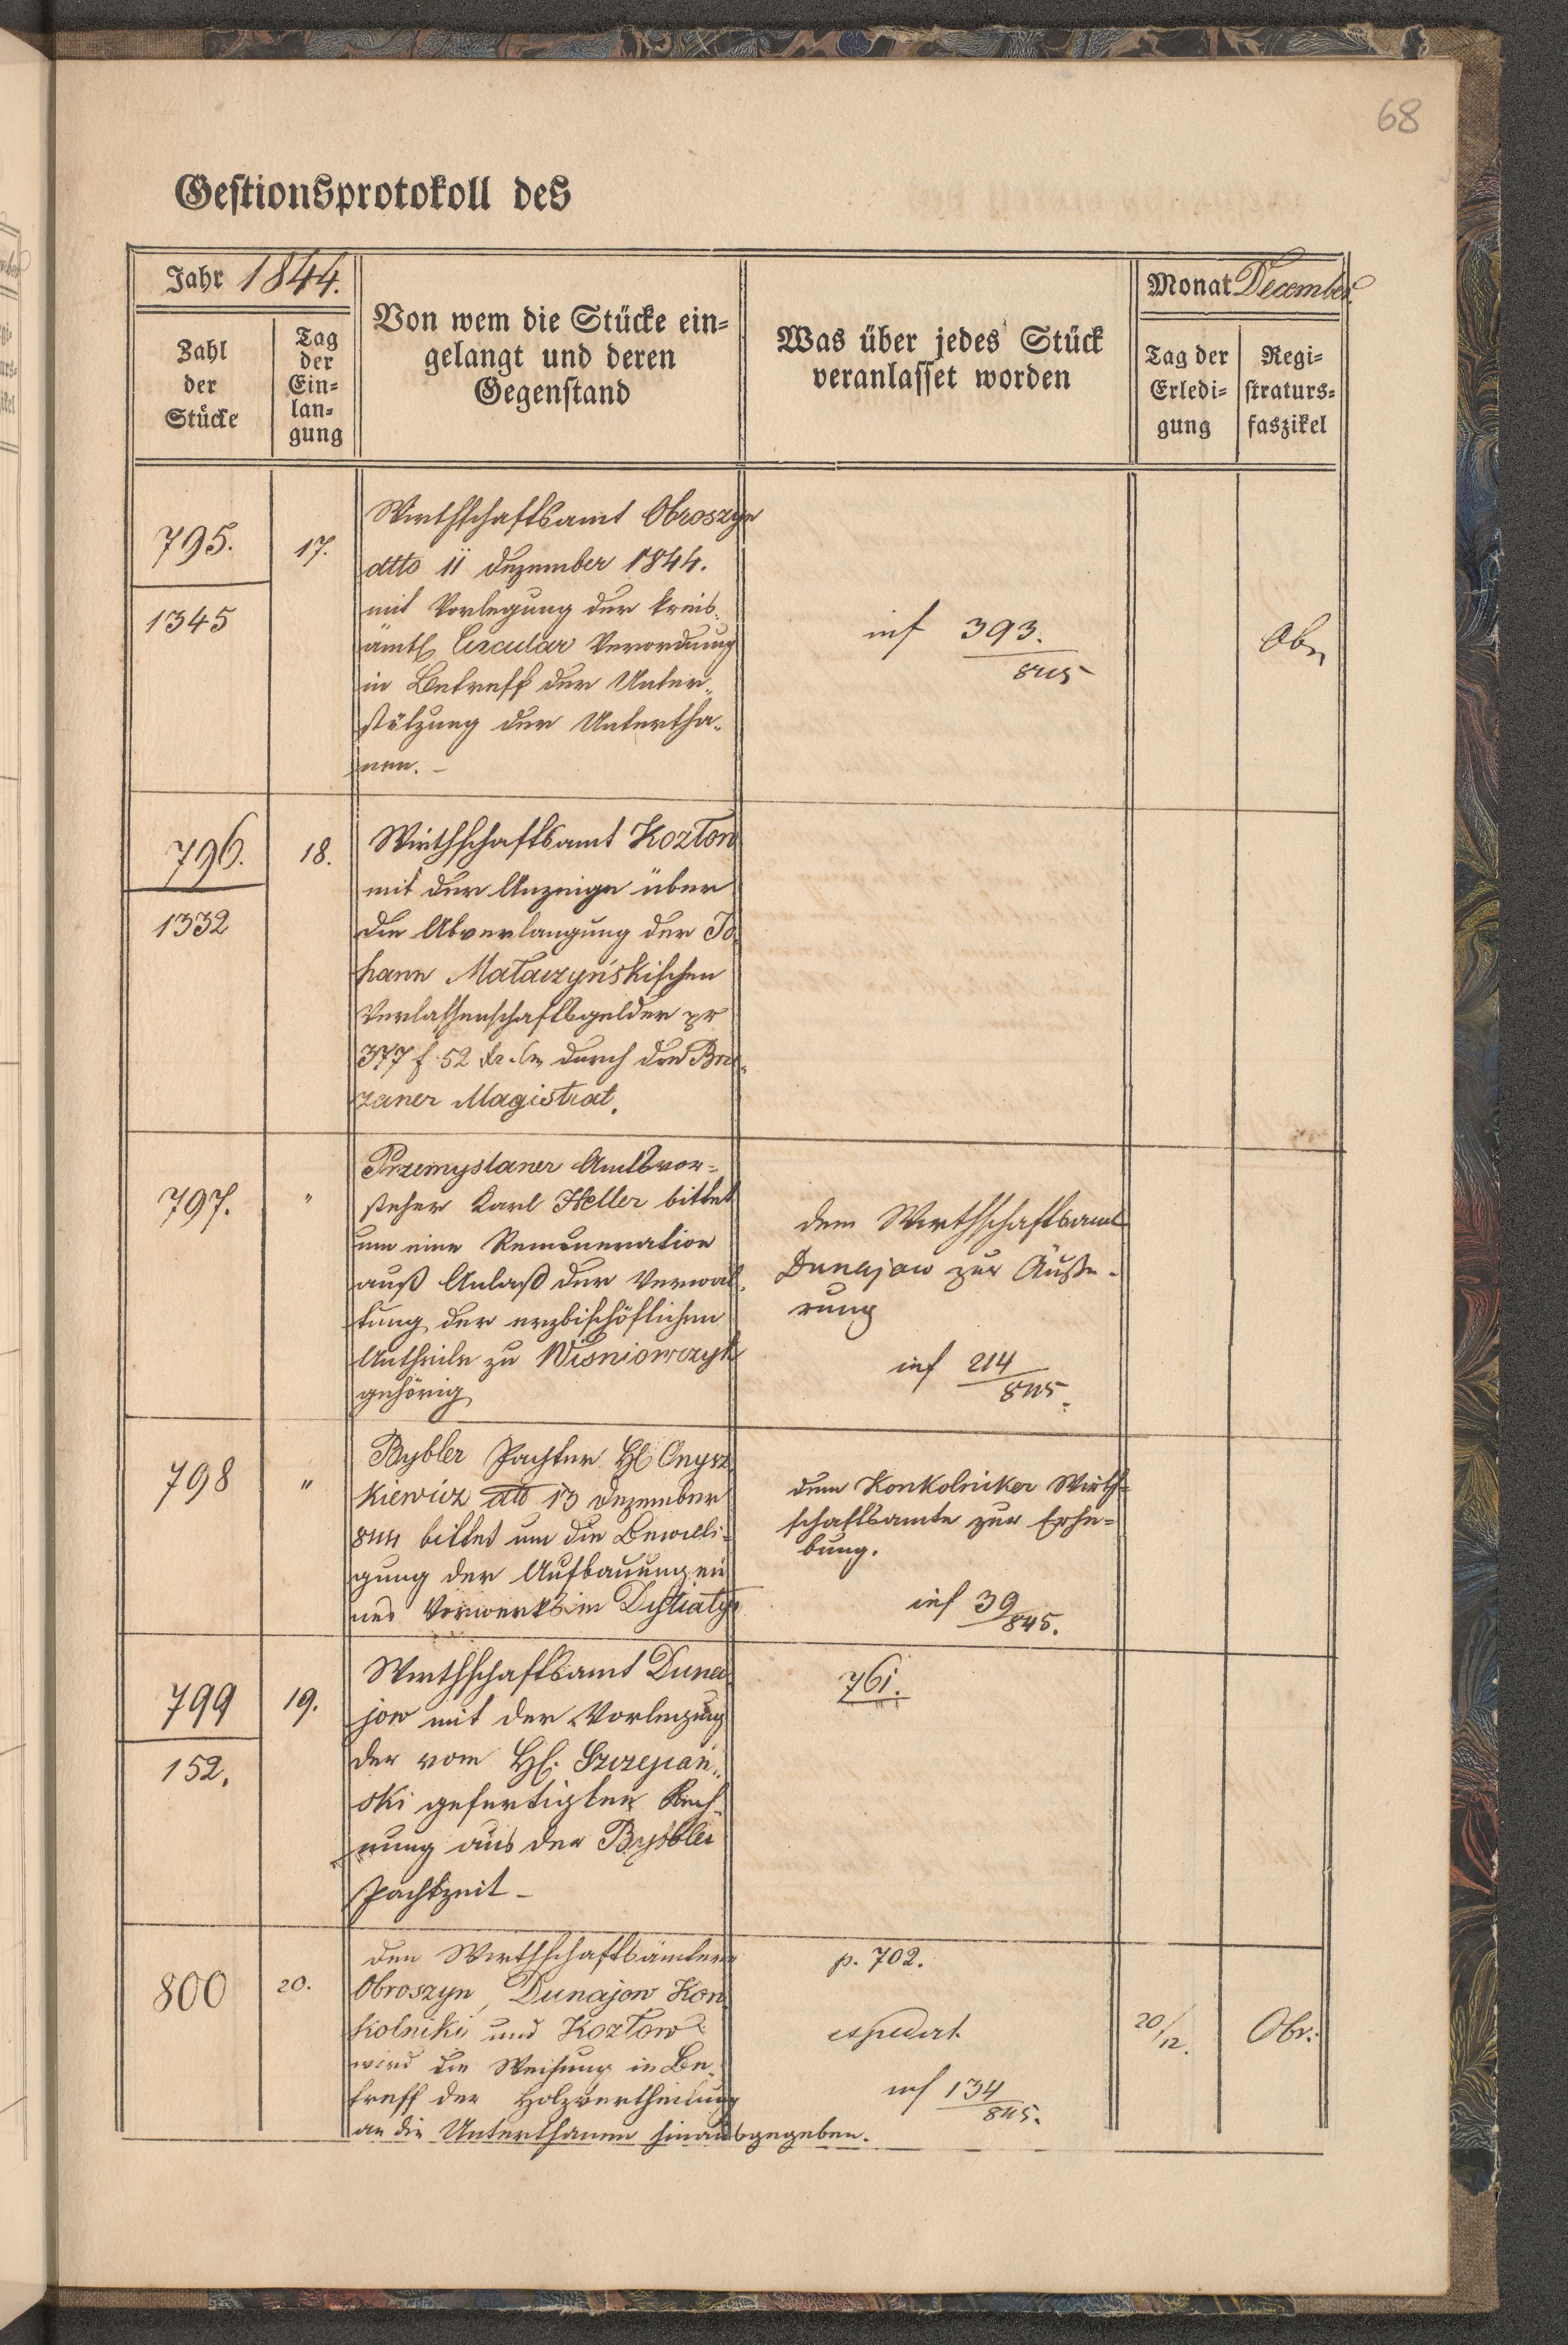 68
Gestionsprotokoll des
Jahr 1844.
Monat December
Zahl
der
Stücke
Tag
der
Ein=
lan=
gung
Von wem die Stücke ein=
gelangt und deren
Gegenstand
Was über jedes Stück
veranlasset worden
Tag der
Erledi=
gung
Regi=
straturs=
faszikel
795.
1345
17.
Wirthschaftsamt Obroszyn
dtto 11 Dezember 1844.
mit Vorlegung der kreis„
ämtl Circular Verordnung
in Betreff der Unter„
stützung der Untertha„
nen. –
inf 393.
845
Obr
796.
1332
18.
Wirthschaftsamt Kozłow
mit der Anzeige über
die Abverlangung der Jo„
hann Małaczyńskischen
Verlassenschaftsgelder pr
377 f 52 kr. Cm durch den Brze„
zaner Magistrat.
797.
"
Przemyslaner Amtsvor=
steher Karl Heller bittet
um eine Remuneration
auß Anlaß der Verwal„
tung der erzbischöflichen
Antheile zu Wisniowczyk
gehörig
dem Wirthschaftsamt
Dunajow zur Äuße-
rung
inf 214
845.
798
"
Bybler Pachter H Onysz„
kiewicz dtto 13 Dezember
844 bittet um die Bewilli=
gung der Aufbauung ei
nes Vorwerks in Dytiatyn
dem Konkolniker Wirth=
schaftsamte zur Erhe=
bung.
inf 39
845.
799
152.
19.
Wirthschaftsamt Duna
jow mit der Vorlegung
der vom H. Szczepań„
ski gefertigten Rech„
nung aus der Bybler
Pachtzeit –
761.
800
20.
den Wirthschaftsämtern
Obroszyn, Dunajow Kon„
kolniki und Kozłow
wird die Weisung in Be„
treff der Holzvertheilung
an die Unterthanen hinausgegeben.
p. 702.
expedirt
inf 134
845.
20/12.
Obr.